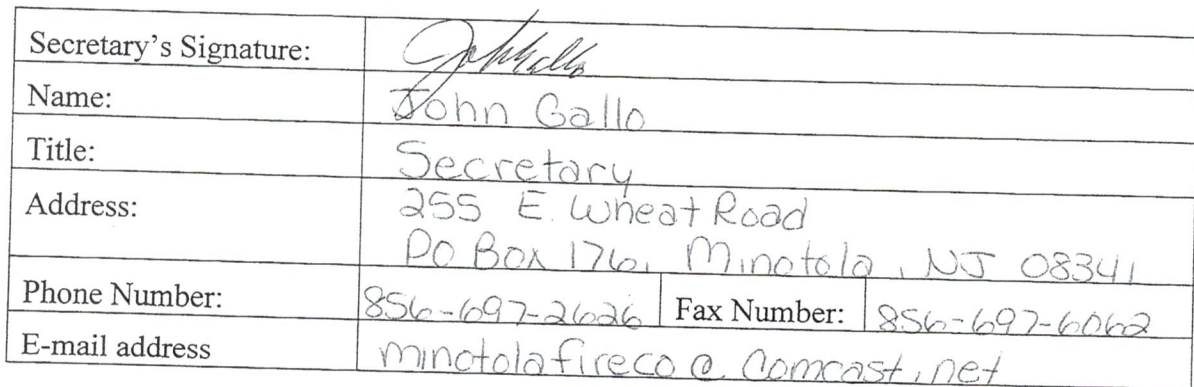 Secretary's Signature: John Gallo
Name: John Gallo
Title: Secretary
Address: 255 E. Wheat Road
PO Box 176, Minotola, NJ 08341
Phone Number: 856-697-2626 Fax Number: 856-697-6062
E-mail address minotolafireco@comcast.net